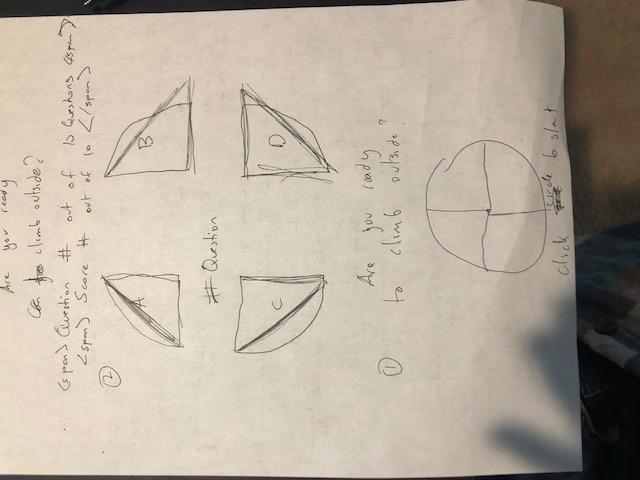 Are you ready
climb outside?
<span> Question # out of 10 Questions <span>
<span> Score # out of 10 </span>
2
A
B
# Question
C
D
Are you ready
1 to climb outside?
click circle to start